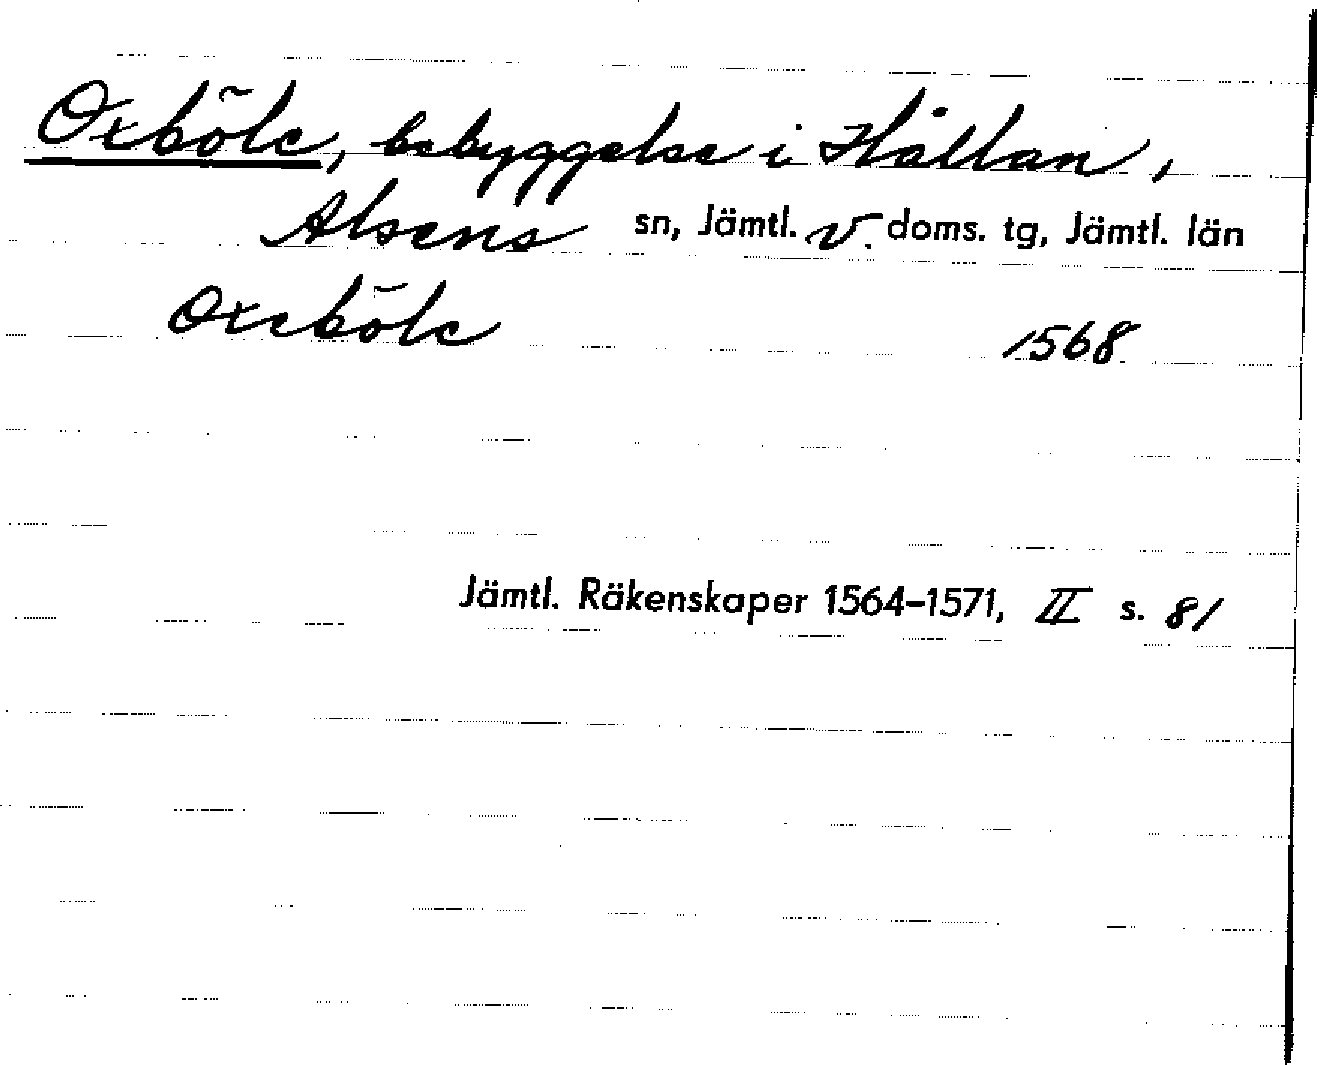 Oxböle, bebyggelse i Hållan,
Alsens sn, Jämtl. v. doms. tg, Jämtl. län
Oxeböle 1568
Jämtl. Räkenskaper 1564–1571, II s. 81